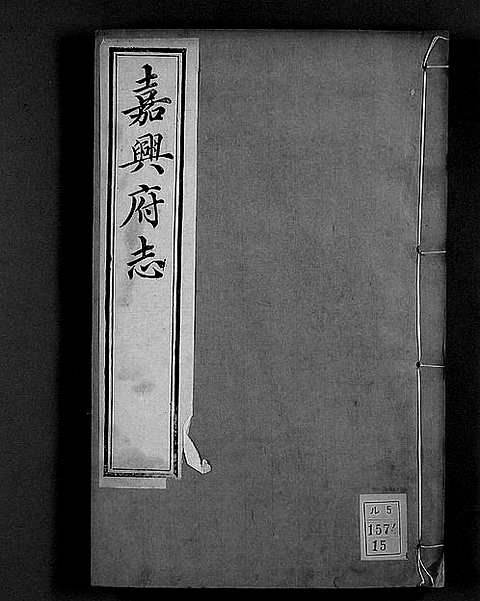 嘉興府志
ル5
1574
15